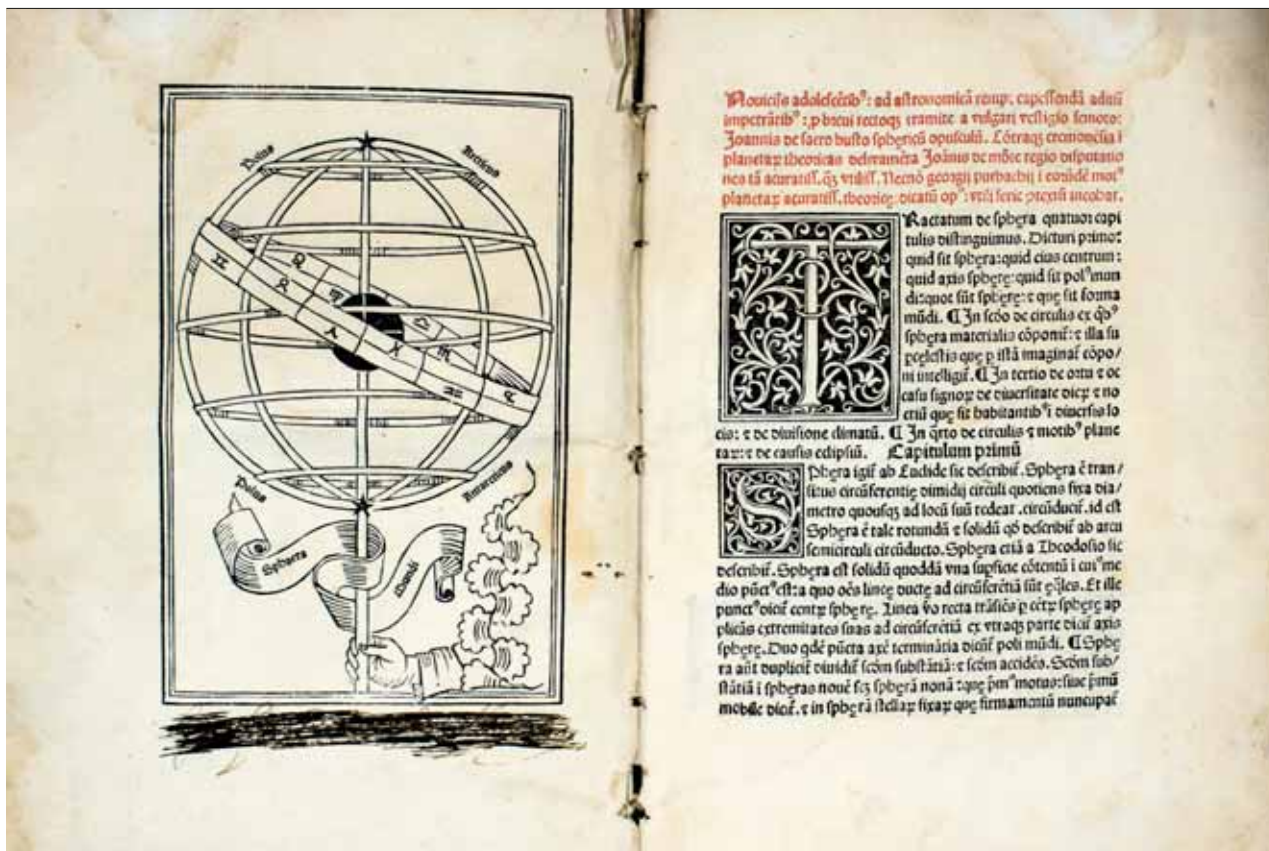 Polus
Arcticus
♊
♉
♈
♓
♒
♌
♍
♎
♏
Polus
Antarcticus
Sphaera
mundi
Nouicijs adolescẽtibꝰ: ad astronomicã remp. capessendã aditũ
impetrãtibꝰ: ꝓ breui rectoqꝫ tramite a vulgari vestigio semoto:
Joannis de sacro busto sphęricũ opusculũ. Cõtraqꝫ cremonẽsia i
planetaꝝ theoricas delyramẽta Joãnis de mõte regio disputatio
nes tã acuratiss. ꝙ̃ꝫ vtiliss. Necnõ georgij purbachij i eorũdẽ motꝰ
planetaꝝ acuratiss. theoricę: dicatũ opꝰ: vtili serie ꝯtextũ: incohat.
TRactatum de sphęra quatuor capi
tulis distinguimus. Dicturi primo:
quid sit sphęra: quid eius centrum:
quid axis sphęrę: quid sit polꝰ mun
di: quot sũt sphęrę: ⁊ quę sit forma
mũdi. ¶ In scõo de circulis ex qꝫbꝰ
sphęra materialis cõponit̃: ⁊ illa su
ꝑcęlestis quę ꝑ istã imaginat̃ cõpo/
ni intelligit̃. ¶ In tertio de ortu ⁊ oc
casu signoꝝ: de diuersitate dieꝝ ⁊ no
ctiũ quę fit habitantibꝰ i diuersis lo
cis: ⁊ de diuisione climatũ. ¶ In q̃rto de circulis ⁊ motibꝰ plane
taꝝ: ⁊ de causis eclipsiũ. Capitulum primũ
SPhęra igit̃ ab Euclide sic describit̃. Sphęra ẽ tran/
situs circũferentię dimidij circuli quotiens fixa dia/
metro quousqꝫ ad locũ suũ redeat .circũducit̃. id est
Sphęra ẽ tale rotundũ ⁊ solidũ qõ describit̃ ab arcu
semicirculi circũducto. Sphęra etiã a Theodosio sic
describit̃. Sphęra est solidũ quoddã vna suꝑficie cõtentũ i cuiꝰ me
dio pũctꝰ est: a quo oẽs lineę ductę ad circũferẽtiã sũt ęq̃les. Et ille
punctꝰ dicit̃ centꝝ sphęrę. Linea ṽo recta trãsiẽs ꝑ cẽtꝝ sphęrę ap
plicãs extremitates suas ad circũferẽtiã ex vtraqꝫ parte dicit̃ axis
sphęrę. Duo qdẽ pũcta axẽ terminãtia dicũt̃ poli mũdi. ¶ Sphę
ra aũt dupliciť diuidit̃ scõm substãtiã: ⁊ scõm accidẽs. Scõm sub/
stãtiã i sphęras nouẽ scꝫ sphęrã nonã: quę p̃mꝰ motus: siue p̃mũ
mobile dicit̃. ⁊ in sphęrã stellaꝝ fixaꝝ quę firmamentũ nuncupat̃